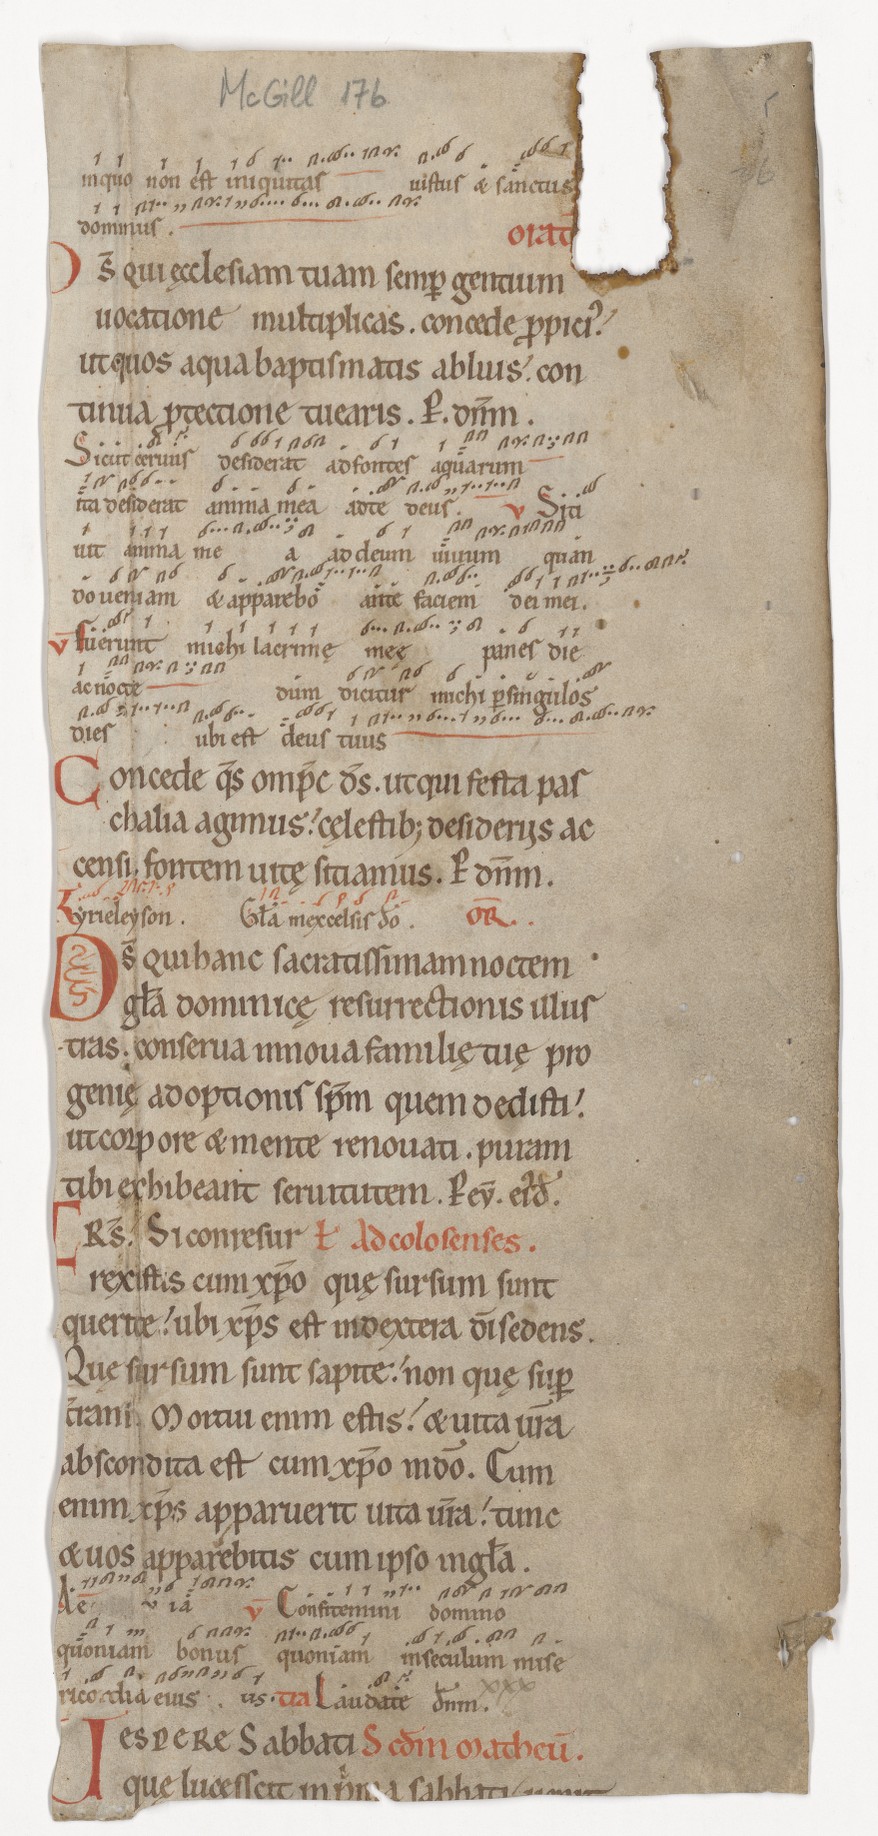 McGill 176
inquo non est iniquitas iustus & sanctus
dominus . orat
Ds̄ qui ęcclesiam tuam semp̱ gentium
uocatione multiplicas . concede ꝓpiciꝰ
ut quos aqua baptismatis abluis . con
tinua ꝓtectione tuearis . P . dn̄m .
Sicut ceruus desiderat ad fontes aquarum
ita desiderat anima mea adte deus . v̄ Siti
uit anima me a ad deum uiuum quan
do ueniam & apparebo ante faciem dei mei .
v̄ fuerunt michi lacrimę meę panes die
ac nocte dum dicitur michi p̱ singulos
dies ubi est deus tuus
Concede q̄s omp̄c ds̄ . ut qui festa pas
chalia agimus ! cęlestib; desiderijs ac
censi . fontem uitę sitiamus . P dn̄m .
Kyrieleyson . Gl̄a inexcelsis dō . OR̄ .
Ds̄ qui hanc sacratissimam noctem
gl̄a dominicę resurrectionis illus
tras . conserua innoua familię tuę pro
genię adoptionis sp̄m quem dedisti !
ut corpore & mente renouati . puram
tibi exhibeant seruitutem . P eȳ . eīd .
FRS̄ . Si conresur ł Ad colosenses .
rexistis cum xp̄o quę sursum sunt
querite ! ubi xp̄s est indextera dī sedens .
Quę sursum sunt sapite ! non quę sup̱
t̄ram . Mortui enim estis ! & uita ur̄a
abscondita est cum xp̄o indō . Cum
enim xp̄s apparuerit uita ur̄a ! tunc
& uos apparebitis cum ipso ingl̄a .
Ae v ia v̄ Confitemini domino
quoniam bonus quoniam inseculum mise
ricordia eius . tia Laudate dn̄m . xxx
ESPERE Sabbati Scd̄m Matheū .
que lucescit in prima sabbati uenit